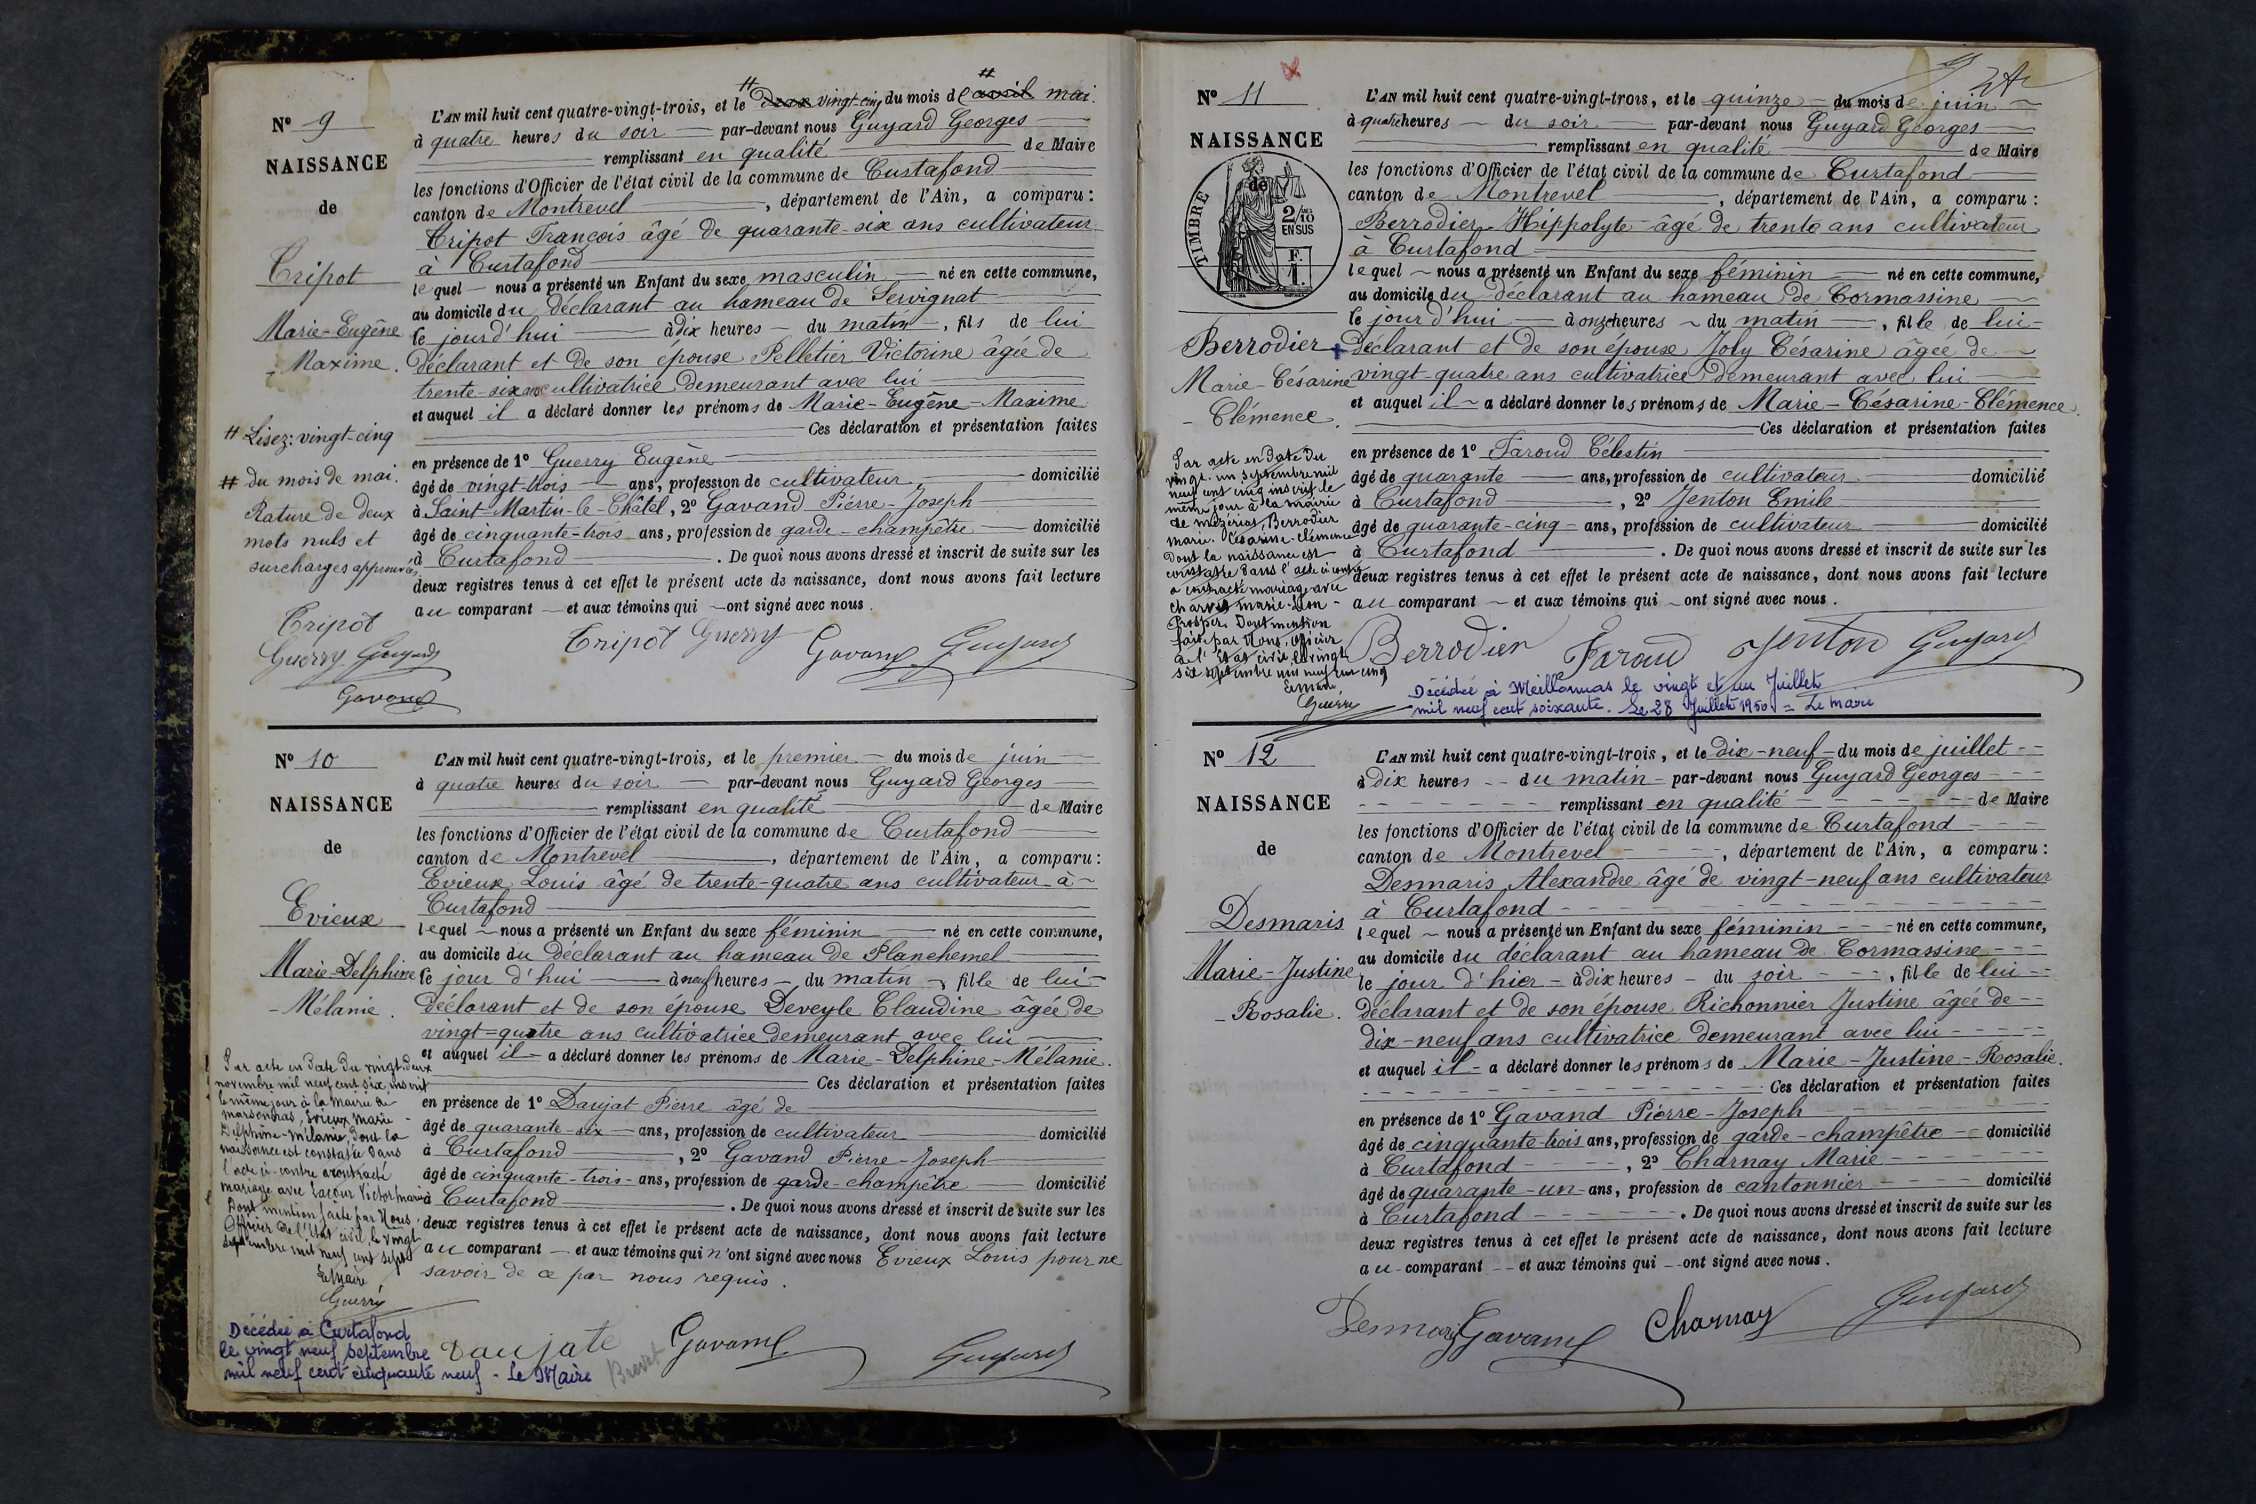 N° 9
NAISSANCE
de
Tripot
Marie-Eugène
-Maxime.
# Lisez: vingt-cinq
# du mois de mai.
Rature de deux
mots nuls et
surcharges approuvés
Tripot
Guerry Guyard
Gavand
L'AN mil huit cent quatre-vingt-trois, et le # deux vingt-cinq du mois de # avril mai.
à quatre heures du soir — par-devant nous Guyard Georges
remplissant en qualité de Maire
les fonctions d'Officier de l'état civil de la commune de Curtafond
canton de Montrevel, département de l'Ain, a comparu:
Tripot François âgé de quarante-six ans cultivateur
à Curtafond
lequel — nous a présenté un Enfant du sexe masculin — né en cette commune,
au domicile du déclarant au hameau de Servignat
le jourd'hui — à dix heures — du matin —, fils de lui
déclarant et de son épouse Pelletier Victorine âgée de
trente-six ans cultivatrice demeurant avec lui
et auquel il a déclaré donner les prénoms de Marie-Eugène-Maxime
Ces déclaration et présentation faites
en présence de 1° Guerry Eugène
âgé de vingt-trois — ans, profession de cultivateur — domicilié
à Saint-Martin-le-Châtel, 2° Gavand Pierre-Joseph
âgé de cinquante-trois ans, profession de garde-champêtre — domicilié
à Curtafond. De quoi nous avons dressé et inscrit de suite sur les
deux registres tenus à cet effet le présent acte de naissance, dont nous avons fait lecture
au comparant — et aux témoins qui — ont signé avec nous.
Tripot Guerry Gavand Guyard
N° 10
NAISSANCE
de
Evieux
Marie-Delphine
-Mélanie.
Par acte en date du vingt-deux
novembre mil neuf cent six, inscrit
le même jour à la Mairie de
marsonnas, Evieux Marie
Delphine-Mélanie, dont la
naissance est constatée dans
l'acte ci-contre a contracté
mariage avec Lacour Victor Marie
Dont mention faite par Nous,
Officier de l'Etat civil, le vingt
septembre mil neuf cent sept
Le Maire
Guerry
Décédée à Curtafond
le vingt neuf septembre
mil neuf cent cinquante neuf - Le Maire
L'AN mil huit cent quatre-vingt-trois, et le premier — du mois de juin
à quatre heures du soir — par-devant nous Guyard Georges
remplissant en qualité de Maire
les fonctions d'Officier de l'état civil de la commune de Curtafond
canton de Montrevel, département de l'Ain, a comparu:
Evieux Louis âgé de trente-quatre ans cultivateur à
Curtafond
lequel — nous a présenté un Enfant du sexe féminin — né en cette commune,
au domicile du déclarant au hameau de Planchemel
le jour d'hui — à neuf heures — du matin —, fille de lui
déclarant et de son épouse Deveyle Claudine âgée de
vingt=quatre ans cultivatrice demeurant avec lui
et auquel il — a déclaré donner les prénoms de Marie-Delphine-Mélanie.
Ces déclaration et présentation faites
en présence de 1° Daujat Pierre âgé de
âgé de quarante-six — ans, profession de cultivateur — domicilié
à Curtafond, 2° Gavand Pierre-Joseph
âgé de cinquante-trois - ans, profession de garde-champêtre — domicilié
à Curtafond. De quoi nous avons dressé et inscrit de suite sur les
deux registres tenus à cet effet le présent acte de naissance, dont nous avons fait lecture
au comparant — et aux témoins qui n'ont signé avec nous Evieux Louis pour ne
savoir de ce par nous requis.
Daujate Brevet Gavand Guyard
N° 11
NAISSANCE
de
TIMBRE
2/10 EN SUS
F.
1.
Berrodier +
Marie-Césarine
-Clémence.
Par acte en date du
vingt-un septembre mil
neuf cent cinq inscrit le
même jour à la mairie
de mézériat, Berrodier
marie-Césarine-Clémence
dont la naissance est
constatée dans l'acte ci-contre
a contracté mariage avec
Charvet marie-Léon-
Prosper. Dont mention
faite par Nous, officier
de l'Etat civil, le vingt
six septembre mil neuf cent cinq
Le maire
Guerry
L'AN mil huit cent quatre-vingt-trois, et le quinze — du mois de juin
à quatre heures — du soir — par-devant nous Guyard Georges
remplissant en qualité de Maire
les fonctions d'Officier de l'état civil de la commune de Curtafond
canton de Montrevel, département de l'Ain, a comparu:
Berrodier Hippolyte âgé de trente ans cultivateur
à Curtafond
lequel — nous a présenté un Enfant du sexe féminin — né en cette commune,
au domicile du déclarant au hameau de Cormassine
le jour d'hui — à onze heures — du matin —, fille de lui
déclarant et de son épouse Joly Césarine âgée de
vingt-quatre ans cultivatrice demeurant avec lui
et auquel il — a déclaré donner les prénoms de Marie-Césarine-Clémence.
Ces déclaration et présentation faites
en présence de 1° Faroud Célestin
âgé de quarante — ans, profession de cultivateur — domicilié
à Curtafond, 2° Jenton Emile
âgé de quarante-cinq - ans, profession de cultivateur — domicilié
à Curtafond. De quoi nous avons dressé et inscrit de suite sur les
deux registres tenus à cet effet le présent acte de naissance, dont nous avons fait lecture
au comparant — et aux témoins qui — ont signé avec nous.
Berrodier Faraud Jenton Guyard
Décédée à Meillonnas le vingt et un Juillet
mil neuf cent soixante. Le 28 Juillet 1960 = Le Maire
N° 12
NAISSANCE
de
Desmaris
Marie-Justine
-Rosalie.
L'AN mil huit cent quatre-vingt-trois, et le dix-neuf — du mois de juillet
à dix heures -- du matin — par-devant nous Guyard Georges
remplissant en qualité de Maire
les fonctions d'Officier de l'état civil de la commune de Curtafond
canton de Montrevel, département de l'Ain, a comparu:
Desmaris Alexandre âgé de vingt-neuf ans cultivateur
à Curtafond
lequel — nous a présenté un Enfant du sexe féminin --- né en cette commune,
au domicile du déclarant au hameau de Cormassine
le jour d'hier — à dix heures — du soir --, fille de lui
déclarant et de son épouse Richonnier Justine âgée de
dix-neuf ans cultivatrice demeurant avec lui
et auquel il — a déclaré donner les prénoms de Marie-Justine-Rosalie.
Ces déclaration et présentation faites
en présence de 1° Gavand Pierre-Joseph
âgé de cinquante-trois ans, profession de garde-champêtre — domicilié
à Curtafond, 2° Charnay Marie
âgé de quarante-un — ans, profession de cantonnier — domicilié
à Curtafond. De quoi nous avons dressé et inscrit de suite sur les
deux registres tenus à cet effet le présent acte de naissance, dont nous avons fait lecture
au comparant -- et aux témoins qui — ont signé avec nous.
Desmaris Gavand Charnay Guyard